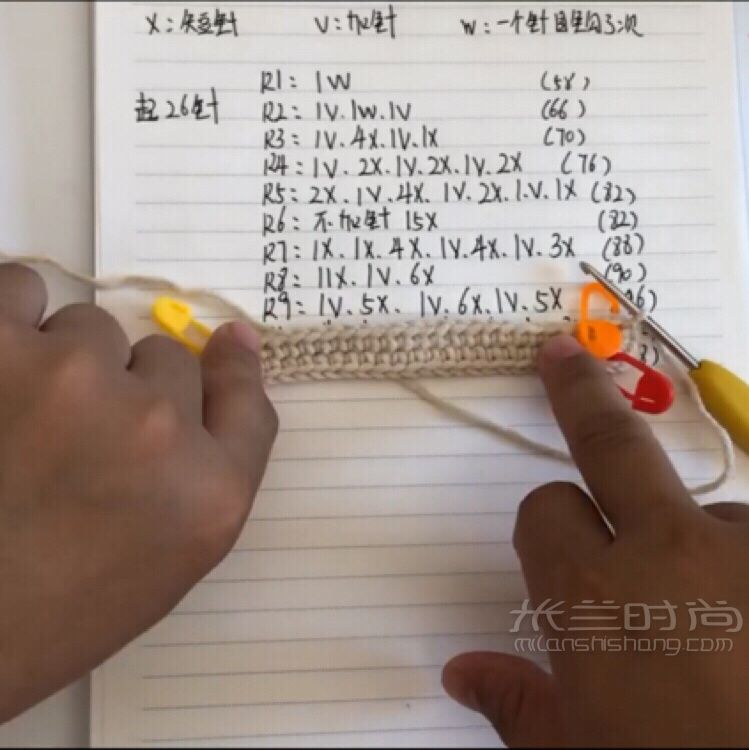 X：矢豆针 V：加针 W：一个针目里勾3次
R1：1W (58)
起26针 R2：1V.1W.1V (66)
R3：1V.4X.1V.1X (70)
R4：1V.2X.1V.2X.1V.2X (76)
R5：2X.1V.4X.1V.2X.1.V.1X (82)
R6：不加针 15X (82)
R7：1X.1X.4X.1V.4X.1V.3X (88)
R8：11X.1V.6X (90)
R9：1V.5X.1V.6X.1V.5X 96)
8)
米兰时尚
milanshishang.com